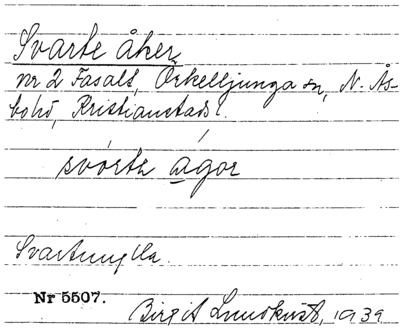 Svarte åker
nr 2 Fasalt, Örkelljunga sn, N. Ås-
bohd, Kristianstads l.
svórta àgor
Svartmylla.
Nr 5507.
Birgit Lundkvist, 1939